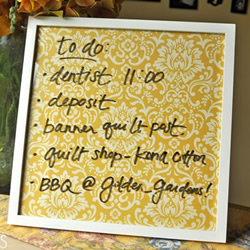 to do:
• dentist 11:00
• deposit
• banner quilt post
• quilt shop - kona cotton
• BBQ @ golden gardens!